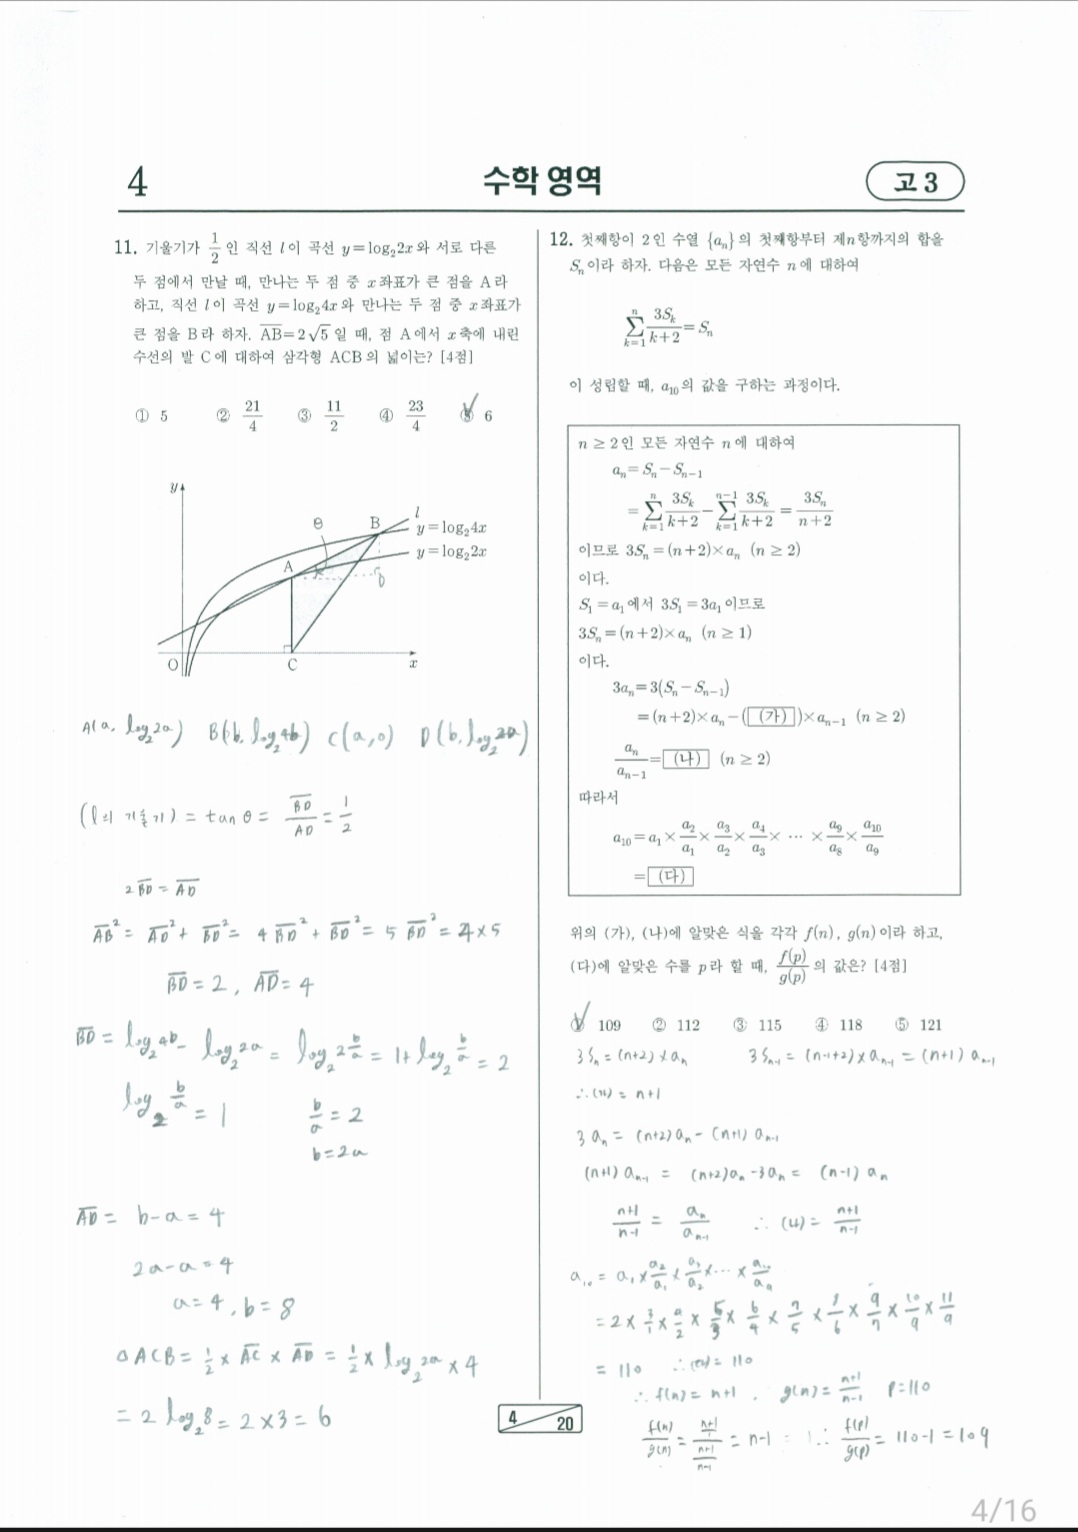 4
수학 영역
고 3
11. 기울기가 1/2 인 직선 l이 곡선 y=log₂2x와 서로 다른
두 점에서 만날 때, 만나는 두 점 중 x좌표가 큰 점을 A라
하고, 직선 l이 곡선 y=log₂4x와 만나는 두 점 중 x좌표가
큰 점을 B라 하자. A̅B̅=2√5 일 때, 점 A에서 x축에 내린
수선의 발 C에 대하여 삼각형 ACB의 넓이는? [4점]
① 5 ② 21/4 ③ 11/2 ④ 23/4 ⑤ 6
y
θ
B
l
y=log₂4x
y=log₂2x
A
D
O
C
x
A(a, log₂2a) B(b, log₂4b) C(a,0) D(b, log₂2a)
(l의 기울기) = tanθ = B̅D̅/A̅D̅ = 1/2
2B̅D̅ = A̅D̅
A̅B̅² = A̅D̅² + B̅D̅² = 4B̅D̅² + B̅D̅² = 5B̅D̅² = 4×5
B̅D̅ = 2, A̅D̅ = 4
B̅D̅ = log₂4b - log₂2a = log₂2b/a = 1+log₂b/a = 2
log₂b/a = 1 b/a = 2
b=2a
A̅D̅ = b-a = 4
2a-a = 4
a=4, b=8
△ACB = 1/2 × A̅C̅ × A̅D̅ = 1/2 × log₂2a × 4
= 2log₂8 = 2×3 = 6
12. 첫째항이 2인 수열 {aₙ}의 첫째항부터 제n항까지의 합을
Sₙ이라 하자. 다음은 모든 자연수 n에 대하여
∑(k=1→n) 3Sₖ/(k+2) = Sₙ
이 성립할 때, a₁₀의 값을 구하는 과정이다.
n≥2인 모든 자연수 n에 대하여
aₙ = Sₙ - Sₙ₋₁
= ∑(k=1→n) 3Sₖ/(k+2) - ∑(k=1→n-1) 3Sₖ/(k+2) = 3Sₙ/(n+2)
이므로 3Sₙ = (n+2)×aₙ (n≥2)
이다.
S₁ = a₁에서 3S₁ = 3a₁이므로
3Sₙ = (n+2)×aₙ (n≥1)
이다.
3aₙ = 3(Sₙ - Sₙ₋₁)
= (n+2)×aₙ - ( (가) )×aₙ₋₁ (n≥2)
aₙ/aₙ₋₁ = (나) (n≥2)
따라서
a₁₀ = a₁ × a₂/a₁ × a₃/a₂ × a₄/a₃ × ⋯ × a₉/a₈ × a₁₀/a₉
= (다)
위의 (가), (나)에 알맞은 식을 각각 f(n), g(n)이라 하고,
(다)에 알맞은 수를 p라 할 때, f(p)/g(p) 의 값은? [4점]
① 109 ② 112 ③ 115 ④ 118 ⑤ 121
3Sₙ = (n+2)×aₙ 3Sₙ₋₁ = (n-1+2)×aₙ₋₁ = (n+1)aₙ₋₁
= n+1
3aₙ = (n+2)aₙ - (n+1)aₙ₋₁
(n+1)aₙ₋₁ = (n+2)aₙ - 3aₙ = (n-1)aₙ
(n+1)/(n-1) = aₙ/aₙ₋₁ ∴ (나) = (n+1)/(n-1)
a₁₀ = a₁ × a₂/a₁ × a₃/a₂ × ⋯ × a₁₀/a₉
= 2 × 3/1 × 4/2 × 5/3 × 6/4 × 7/5 × 8/6 × 9/7 × 10/9 × 11/9
= 110 ∴ (다) = 110
∴ f(n) = n+1, g(n) = (n+1)/(n-1) p=110
f(n)/g(n) = ((n+1)/1)/((n+1)/(n-1)) = n-1 ∴ f(p)/g(p) = 110-1 = 109
4 20
4/16